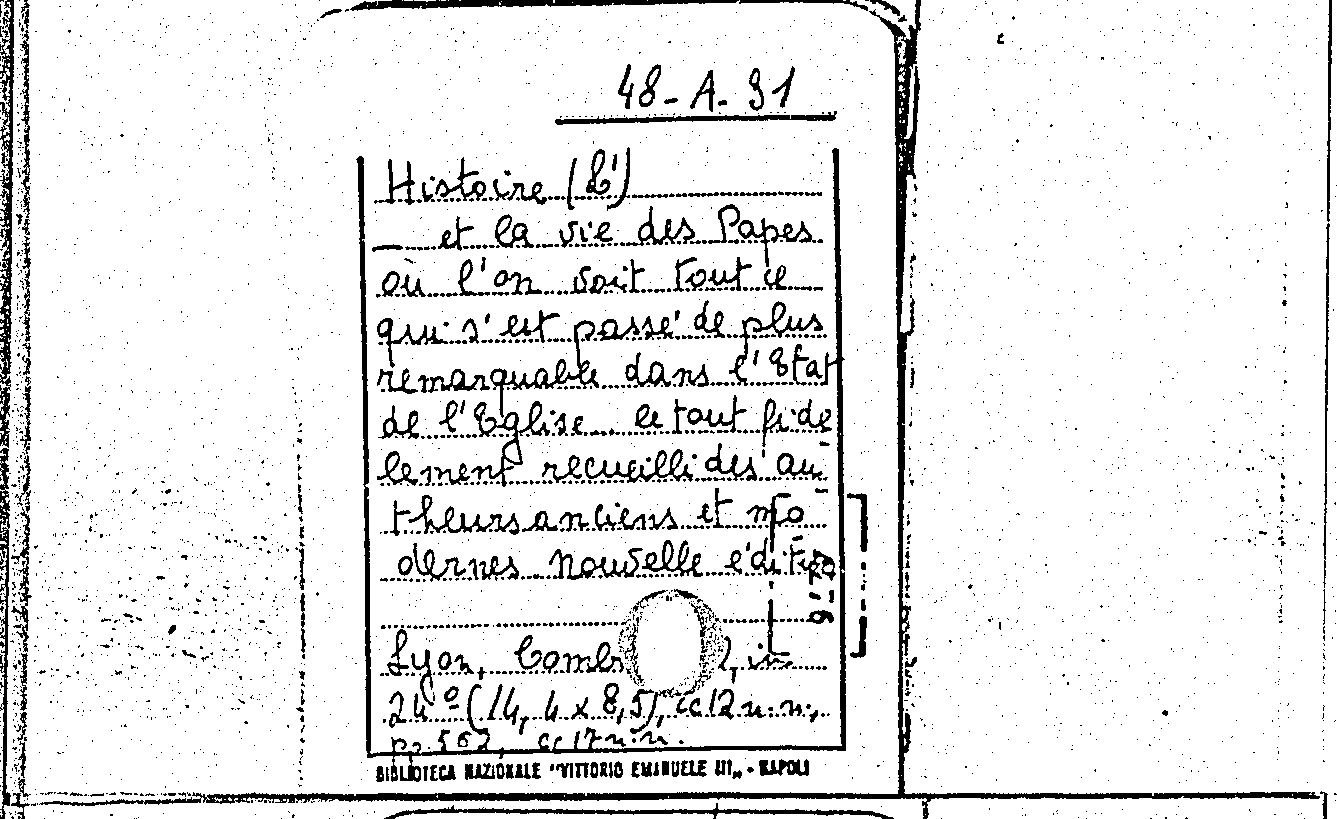 48-A-31
Histoire (L')
— et la vie des Papes
où l'on voit tout ce
qui s'est passé de plus
remarquable dans l'Etat
de l'Eglise... le tout fide
lement recueilli des au-
theurs anciens et mo-
dernes. Nouvelle édition
Lyon, in
24º (14,4 x 8,5), cc 12 n.n.,
pp. 567, cc 17 n.n.
BIBLIOTECA NAZIONALE "VITTORIO EMANUELE III" - NAPOLI